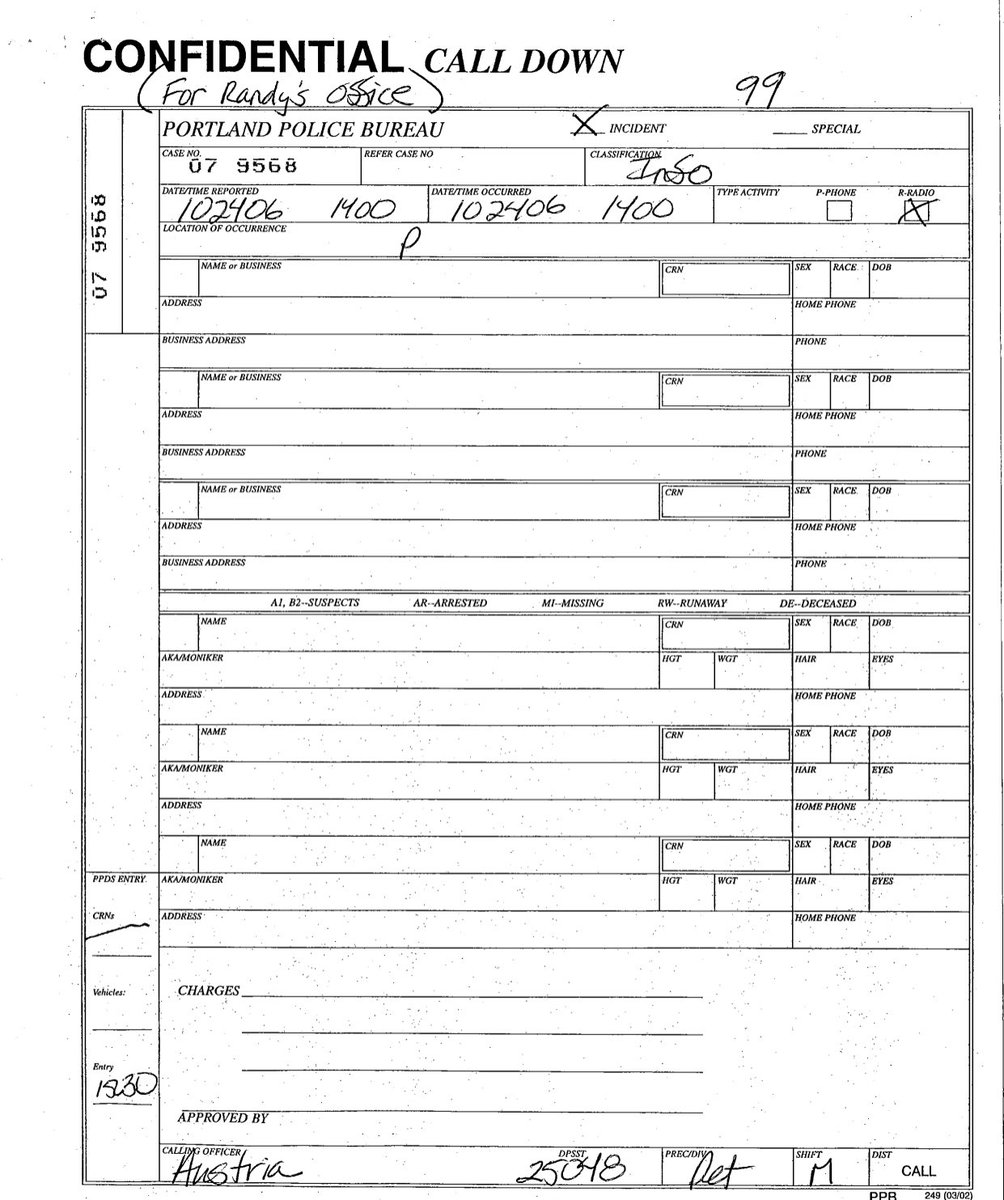 CONFIDENTIAL CALL DOWN
(For Randy's Office) 99
PORTLAND POLICE BUREAU X INCIDENT ____ SPECIAL
CASE NO. REFER CASE NO CLASSIFICATION
07 9568 Info
DATE/TIME REPORTED DATE/TIME OCCURRED TYPE ACTIVITY P-PHONE R-RADIO
102406 1400 102406 1400 X
07 9568
LOCATION OF OCCURRENCE
P
NAME or BUSINESS CRN SEX RACE DOB
ADDRESS HOME PHONE
BUSINESS ADDRESS PHONE
NAME or BUSINESS CRN SEX RACE DOB
ADDRESS HOME PHONE
BUSINESS ADDRESS PHONE
NAME or BUSINESS CRN SEX RACE DOB
ADDRESS HOME PHONE
BUSINESS ADDRESS PHONE
A1, B2--SUSPECTS AR--ARRESTED MI--MISSING RW--RUNAWAY DE--DECEASED
NAME CRN SEX RACE DOB
AKA/MONIKER HGT WGT HAIR EYES
ADDRESS HOME PHONE
NAME CRN SEX RACE DOB
AKA/MONIKER HGT WGT HAIR EYES
ADDRESS HOME PHONE
NAME CRN SEX RACE DOB
PPDS ENTRY. AKA/MONIKER HGT WGT HAIR EYES
CRNs ADDRESS HOME PHONE
Vehicles: CHARGES
Entry
1830
APPROVED BY
CALLING OFFICER DPSST PREC/DIV SHIFT DIST
Austria 25048 Det M CALL
PPB 249 (03/02)